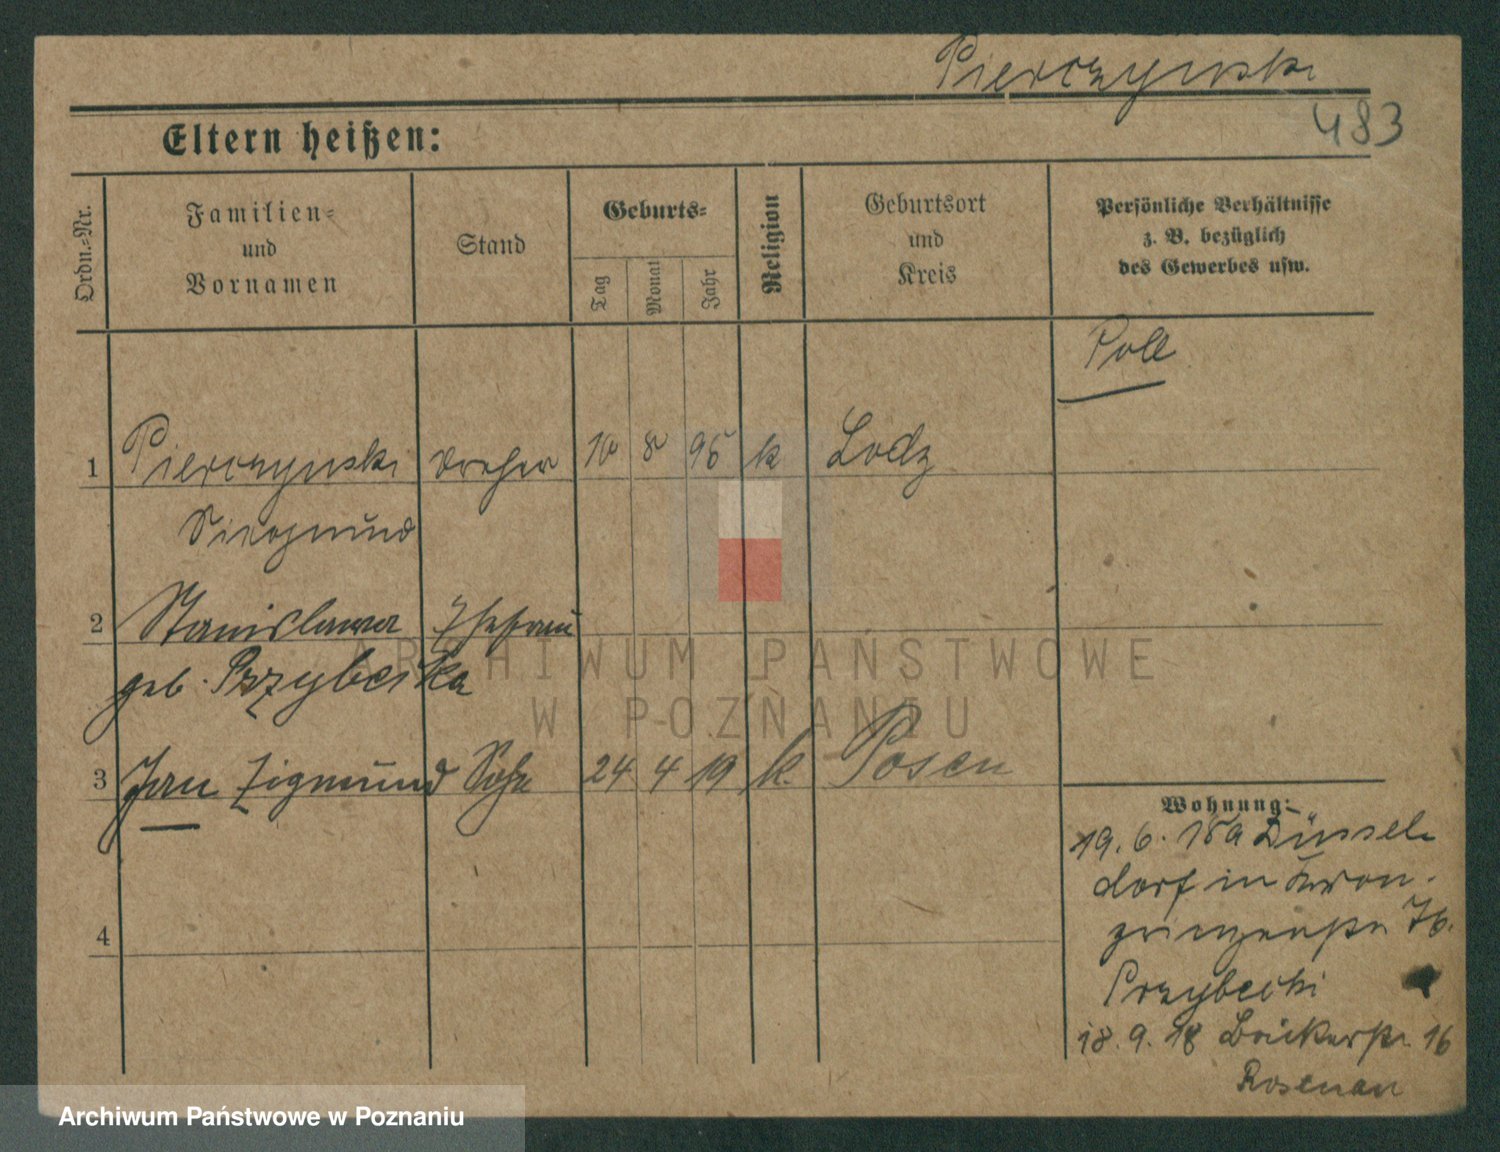 Pierczynski
483
Eltern heißen:
Ordn.-Nr.
Familien-
und
Vornamen
Stand
Geburts-
Tag
Monat
Jahr
Religion
Geburtsort
und
Kreis
Persönliche Verhältnisse
z. B. bezüglich
des Gewerbes usw.
1 Pierczynski Dreher 10 8 95 k Lodz
Siegmund
2 Stanislawa Ehefrau
geb. Przybecka
3 Jan Zigmund Sohn 24 4 19 k. Posen
4
Wohnung:
19.6. Düssel-
dorf in Kron-
prinzenstr 76.
Przybecki
18.9.18 Bäckerstr. 16
Rosenau
ARCHIWUM PAŃSTWOWE
W POZNANIU
Archiwum Państwowe w Poznaniu